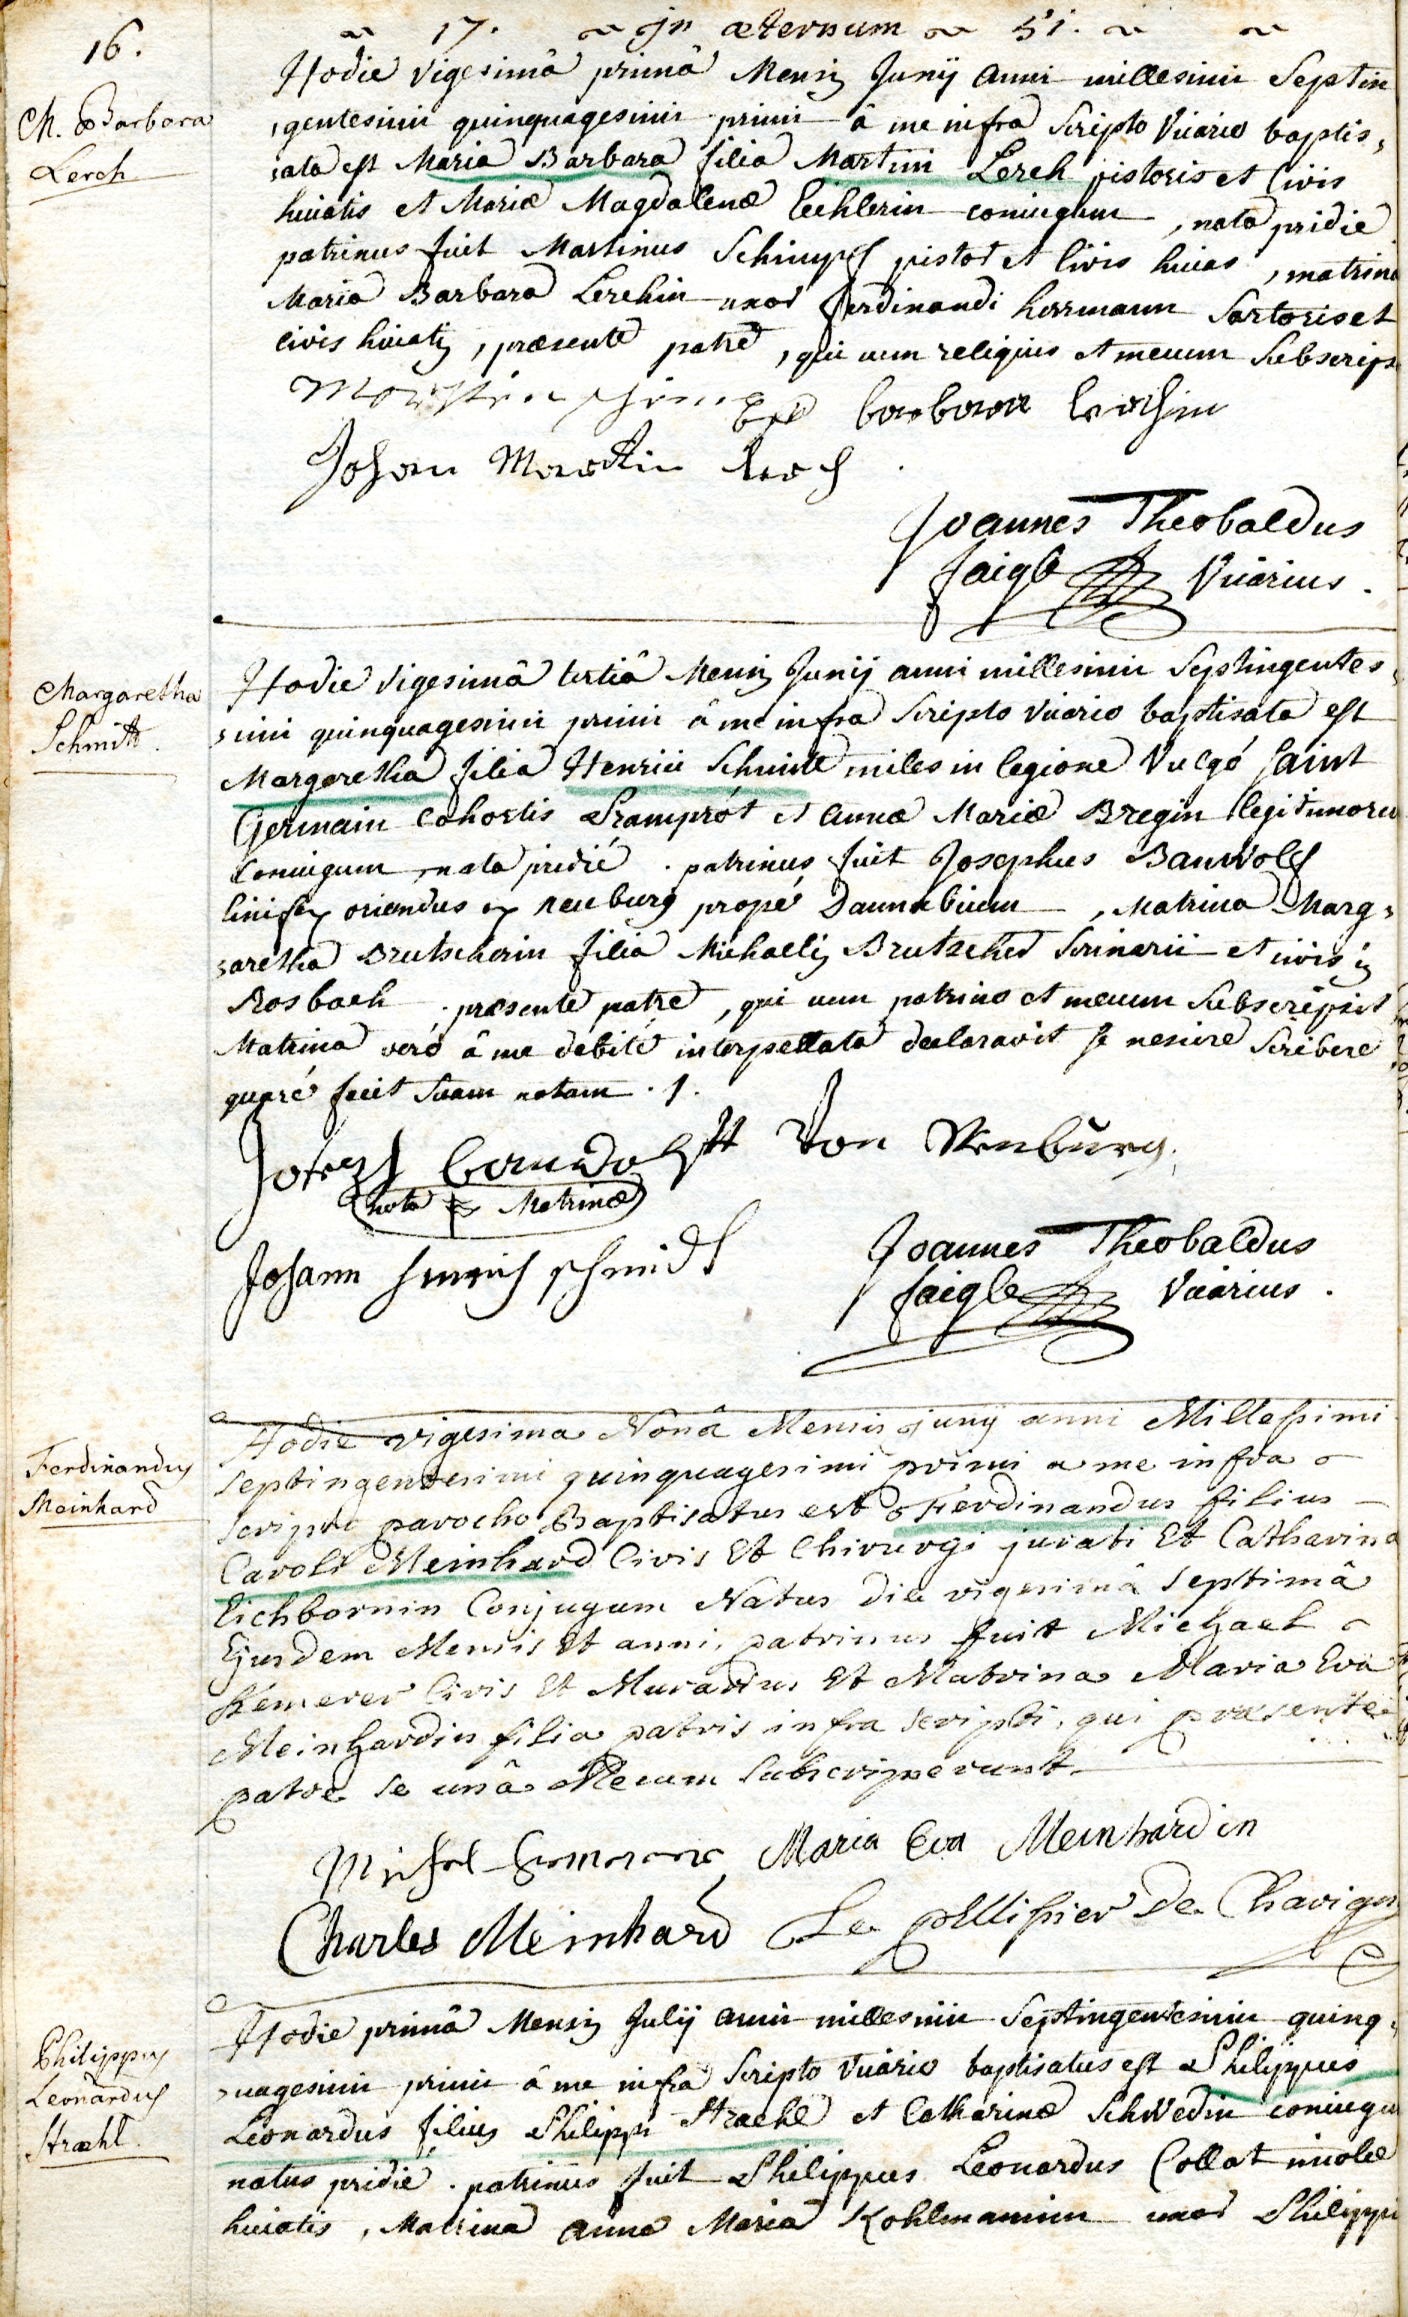 16.
~ 17. ~ In æternum ~ 51. ~ ~
M. Barbara
Lerch
Hodie vigesimâ primâ Mensis Junij anni millesimi Septin
gentesimi quinquagesimi primi â me infra Scripto Vicario baptis,
sata est Maria Barbara filia Martini Lerch pistoris et Civis
huiatis et Mariæ Magdalenæ Eichlerin coniugum, nata pridie
patrinus fuit Martinus Schimpf pistor et Civis huias, matrina
Maria Barbara Lerchin uxor Ferdinandi herrmann Sartoris et
civis huiatis, præsente patre, qui cum reliquis et mecum Subscrips
Martin schimpf barbara lerchin
Johan Martin Lerch.
Joannes Theobaldus
faigle Vicarius.
Margaretha
Schmitt.
Hodie vigesimâ tertiâ Mensis Junij anni millesimi Septingentes,
simi quinquagesimi primi â me infra Scripto Vicario baptisata est
Margaretha filia Henrici Schmitt miles in legione Vulgó Saint
Germain Cohortis et annæ Mariæ Bregin legitimoru
Coniugum, nata pridié. patrinus fuit Josephus Banwolf
linifex oriundus ex neuburg propé Dannubium, Matrina Marg,
aretha Brutscherin filia Michaelis Brutscher Scrinarii et civis in
Rosbach. præsente patre, qui cum patrino et mecum Subscripsit
Matrina veró â me debité interpellata declaravit se nescire Scribere
quaré fecit Suam notam. /.
Josep banwolff Von Neuburg.
nota Matrinæ
Johann henrich schmidt
Joannes Theobaldus
faigle Vicarius.
Ferdinandus
Meinhard
Hodie vigesima Nonâ Mensis junij anni Millessimi
septingentesimi quinquagesimi primi a me infra
scripto parocho Baptisatus est Ferdinandus filius
Caroli Meinhard Civis Et Chirurgi jurati Et Catharina
Eichbornin Conjugum Natus die vigesimâ septimâ
Ejusdem Mensis Et anni, patrinus fuit Michael
Kemerer Civis Et Murarius Et Matrina Maria Eva
Meinhardin filia patris infra scripti, qui præsente
patre se unâ Mecum subscripserunt.
Michel Maria Eva Meinhardin
Charles Meinhard Le pellissier De Chavigny
Philippus
Leonardus
Stræhl.
Hodie primâ Mensis Julij anni millesimi Septingentesimi quinq,
uagesimi primi â me infra Scripto Vicario baptisatus est Philippus
Leonardus filius Philippi Straehl et Catharinæ Schwedin coniugu
natus pridié. patrinus fuit Philippus Leonardus Collot incola
huiatis, Matrina anna Maria Kohlmannin uxor Philippi